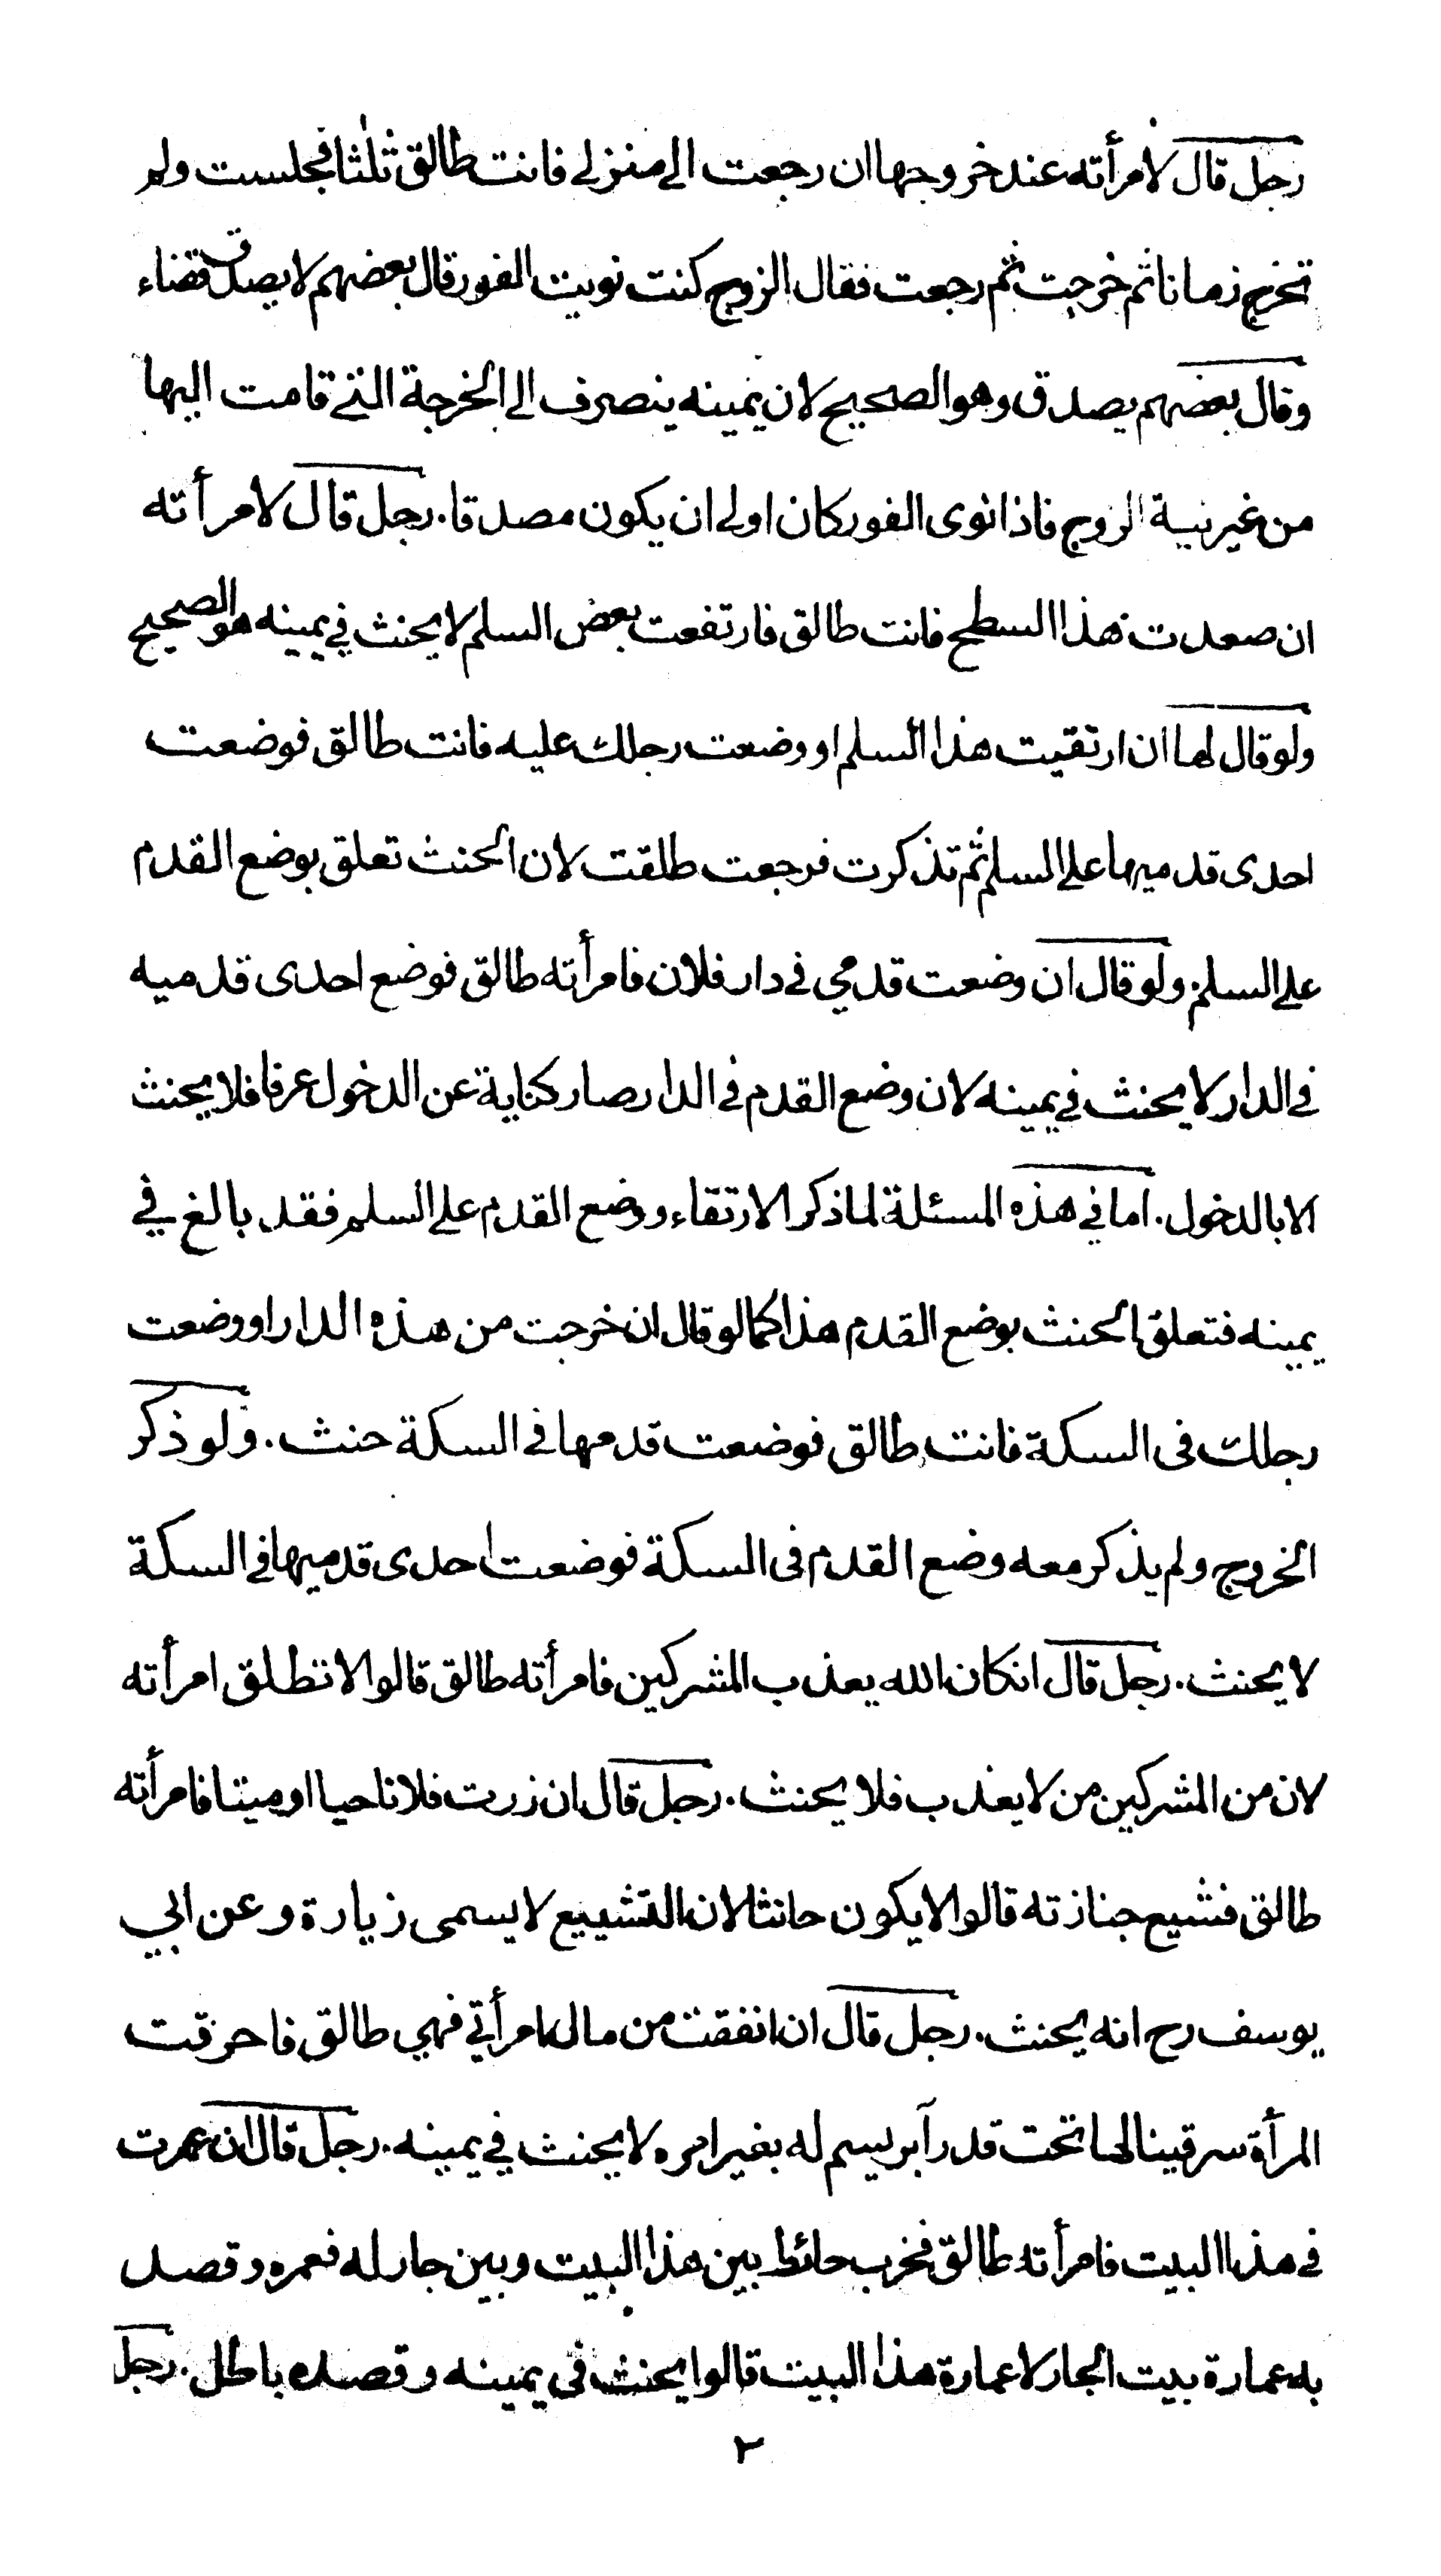 رجل قال لامرأته عند خروجها ان رجعت الى منزلي فانت طالق ثلثا فجلست ولم
تخرج زمانا ثم خرجت ثم رجعت فقال الزوج كنت نويت الفور قال بعضهم لا يصدق قضاء
وقال بعضهم يصدق وهو الصحيح لان يمينه ينصرف الى الخرجة التي قامت اليها
من غير نية الزوج فاذا نوى الفور كان اولى ان يكون مصدقا. رجل قال لامرأته
ان صعدت هذا السطح فانت طالق فارتفعت بعض السلم لا يحنث في يمينه هو الصحيح
ولو قال لها ان ارتقيت هذا السلم او وضعت رجلك عليه فانت طالق فوضعت
احدى قدميها على السلم ثم تذكرت فرجعت طلقت لان الحنث تعلق بوضع القدم
على السلم. ولو قال ان وضعت قدمي في دار فلان فامرأته طالق فوضع احدى قدميه
في الدار لا يحنث في يمينه لان وضع القدم في الدار صار كناية عن الدخول عرفا فلا يحنث
الا بالدخول. اما في هذه المسئلة لما ذكر الارتقاء ووضع القدم على السلم فقد بالغ في
يمينه فتعلق الحنث بوضع القدم هذا كما لو قال ان خرجت من هذه الدار او وضعت
رجلك في السكة فانت طالق فوضعت قدمها في السكة حنث. ولو ذكر
الخروج ولم يذكر معه وضع القدم في السكة فوضعت احدى قدميها في السكة
لا يحنث. رجل قال انكان الله يعذب المشركين فامرأته طالق قالوا لا تطلق امرأته
لان من المشركين من لا يعذب فلا يحنث. رجل قال ان زرت فلانا حيا او ميتا فامرأته
طالق فشيع جنازته قالوا لا يكون حانثا لان التشييع لا يسمى زيارة وعن ابي
يوسف رح انه يحنث. رجل قال ان انفقت من مالي امرأتي فهي طالق فاحرقت
المرأة سرقينا لها تحت قدر آبريسم له بغير امره لا يحنث في يمينه. رجل قال ان عمرت
في هذا البيت فامرأته طالق فخرب حائط بين هذا البيت وبين جار له فعمره وقصد
به عمارة بيت الجار لا عمارة هذا البيت قالوا يحنث في يمينه وقصده باطل. رجل
٢